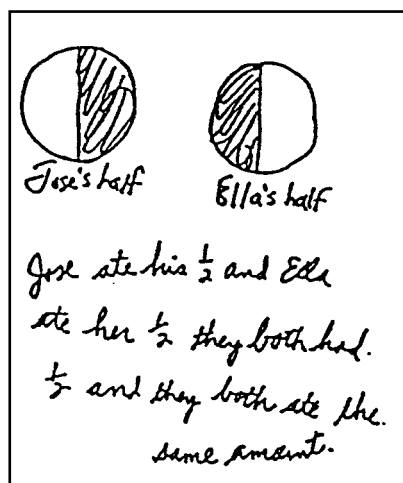 Jose's half
Ella's half
Jose ate his 1/2 and Ella
ate her 1/2 they both had.
1/2 and they both ate the.
same amount.